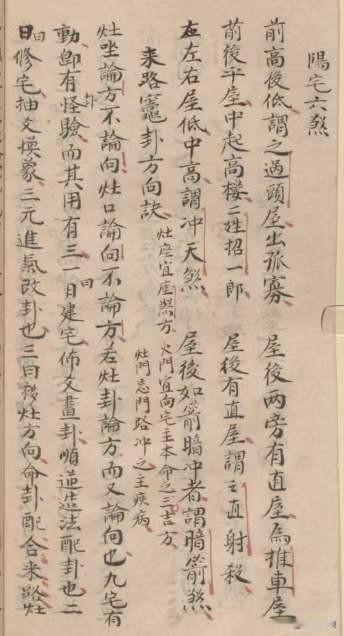 陽宅六煞
前高後低謂之過頭屋出孤寡 屋後兩旁有直屋為推車屋
前後平屋中起高樓二姓招一郎 屋後有直屋謂之直射殺
在左右屋低中高謂冲天煞 屋後如箭暗冲者謂暗箭煞
来路竈卦方向訣 灶座宜座煞方 火門宜向宅主本命之三吉方
灶門忌門路冲之主疾病
灶坐論方不論向灶口論向不論方右灶卦論方而又論向也九宅有
卦
動卽有怪驗而其用有三一曰建宅佈爻畫卦順逆造法配卦也二
曰修宅抽爻換象三元進氣改卦也三曰移灶方向命卦配合来路灶